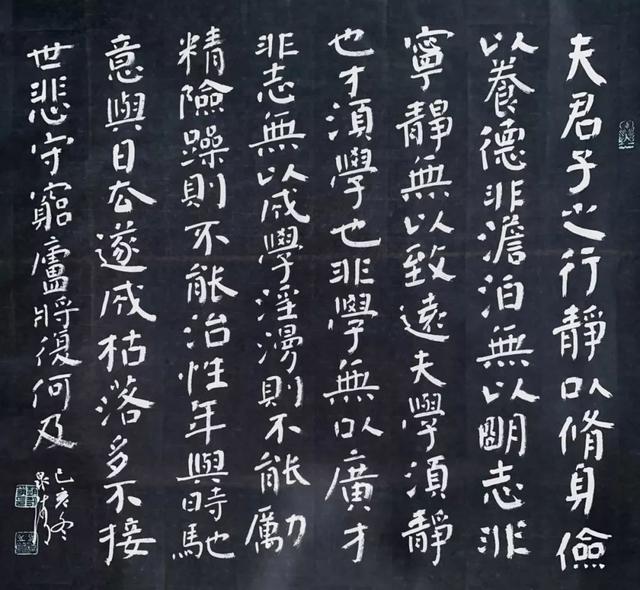 夫君子之行靜以脩身儉
以養德非澹泊無以明志非
寧靜無以致遠夫學須靜
也才須學也非學無以廣才
非志無以成學淫漫則不能勵
精險躁則不能治性年與時馳
意與日去遂成枯落多不接
世悲守窮廬將復何及
己亥冬